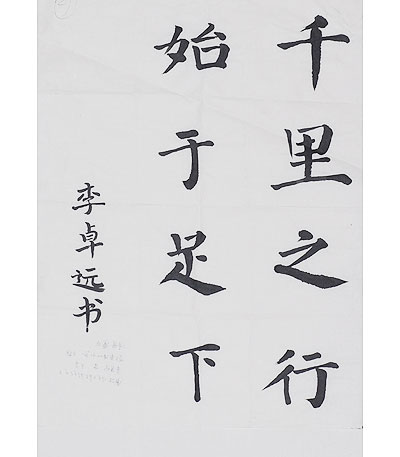 千里之行
始于足下
李卓远书